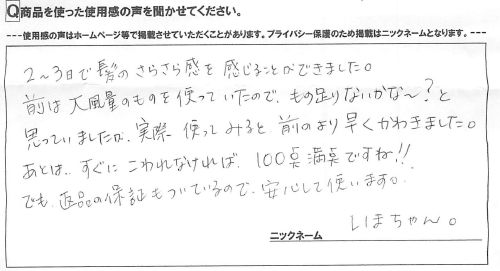 Q商品を使った使用感の声を聞かせてください。
---使用感の声はホームページ等で掲載させていただくことがあります。プライバシー保護のため掲載はニックネームとなります。---
2～3日で髪のさらさら感を感じることができました。
前は大風量のものを使っていたので、もの足りないかな～?と
思っていましたが、実際使ってみると前のより早くかわきました。
あとは、すぐにこわれなければ、100点満点ですね!!
でも、返品の保証もついているので、安心して使います。
ニックネーム いまちゃん。